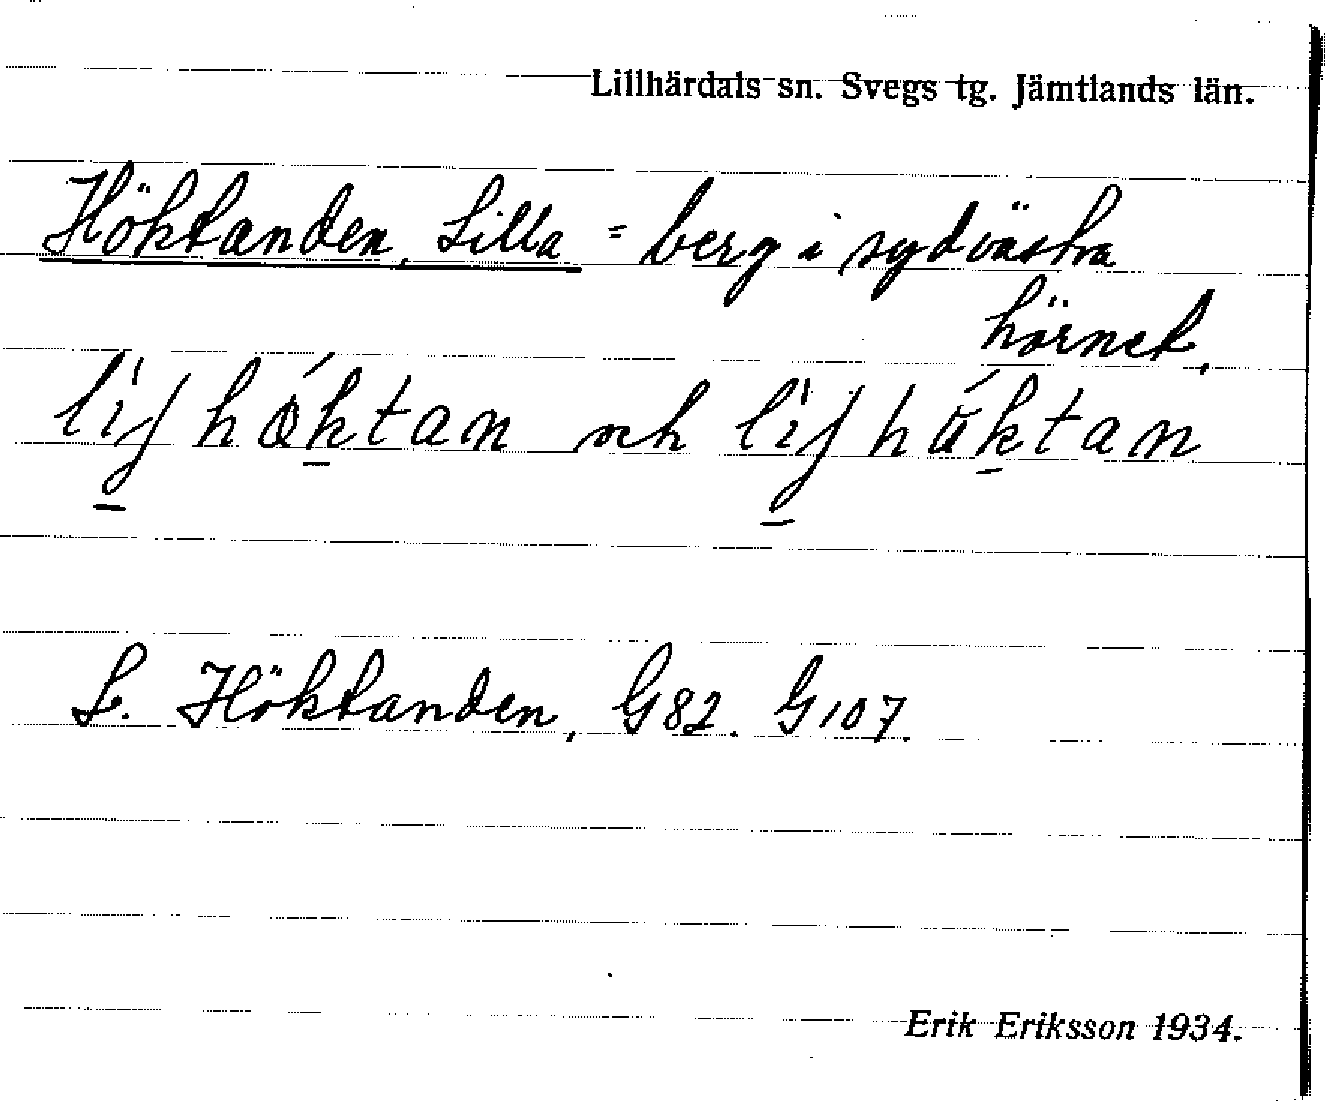 Lillhärdals sn. Svegs tg. Jämtlands län.
Höktanden, Lilla = berg i sydvästra
hörnet,
och
L. Höktanden, G82. G107.
Erik Eriksson 1934.